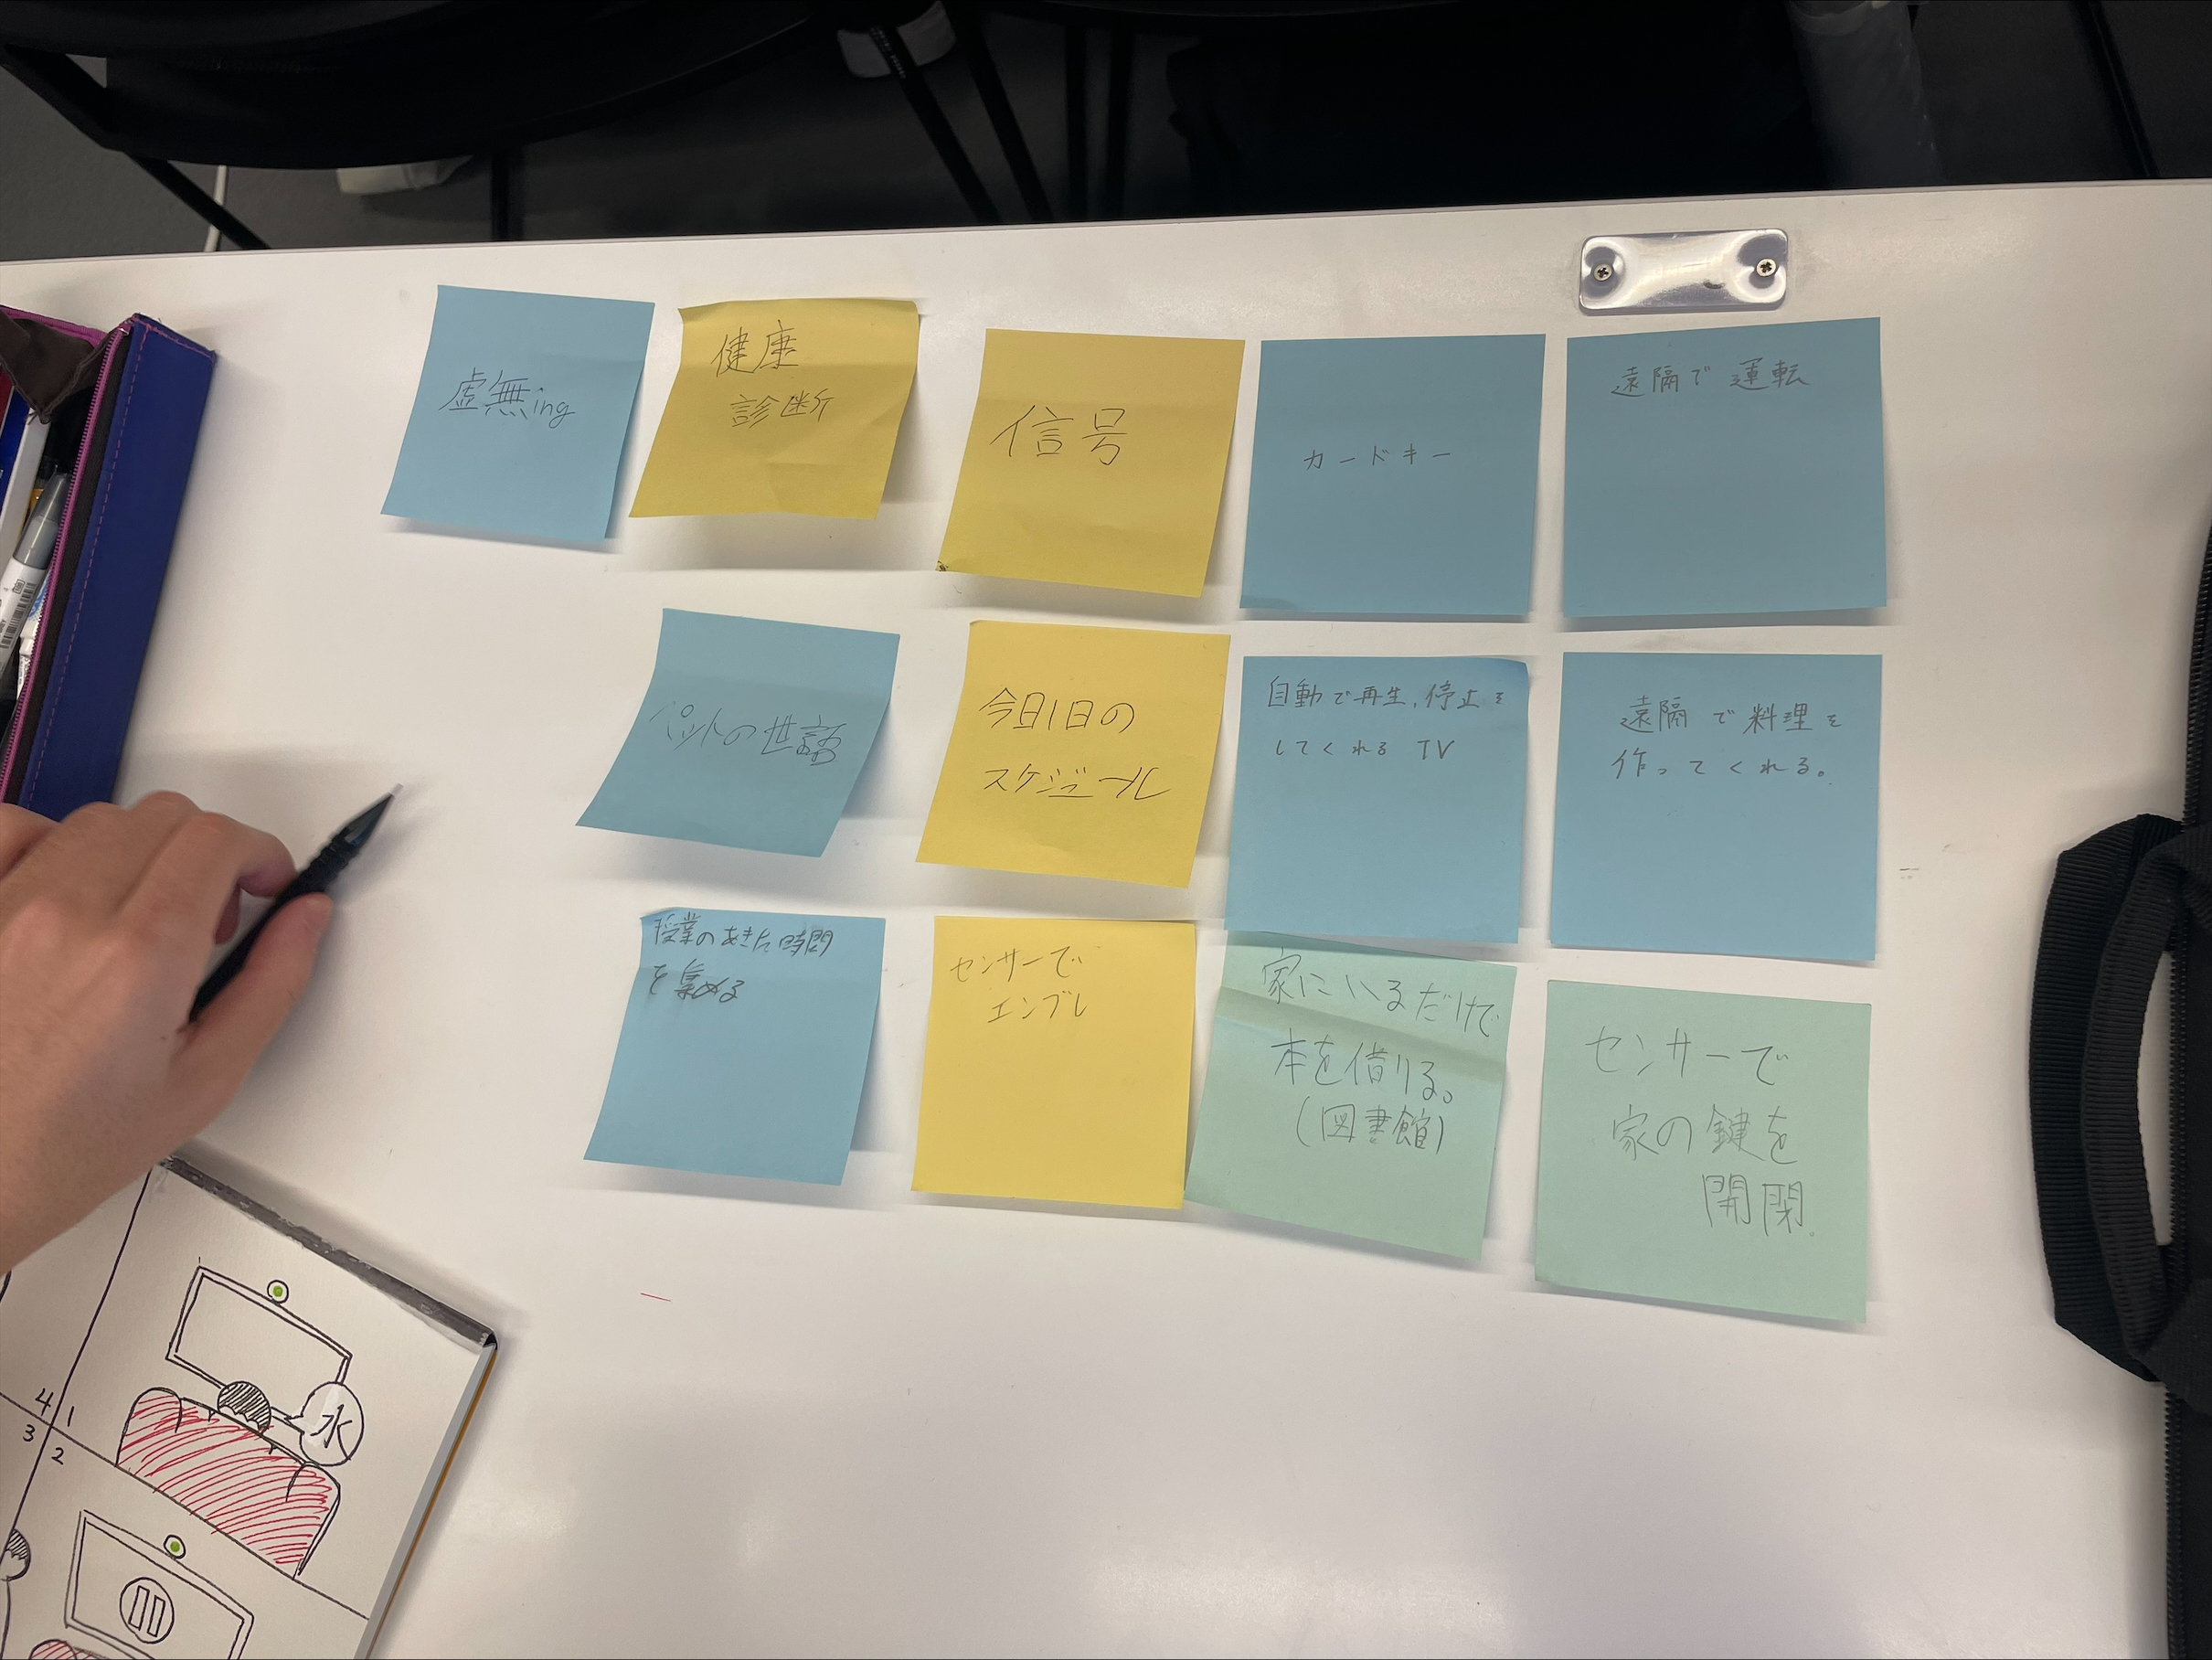 虚無ing
健康
診断
信号
カードキー
遠隔で運転
ペットの世話
今日1日の
スケジュール
自動で再生、停止を
してくれる TV
遠隔で料理を
作ってくれる。
授業のあきた時間
を集める
センサーで
エンブレ
家にいるだけで
本を借りる。
(図書館)
センサーで
家の鍵を
開閉。
水
4 1
3 2